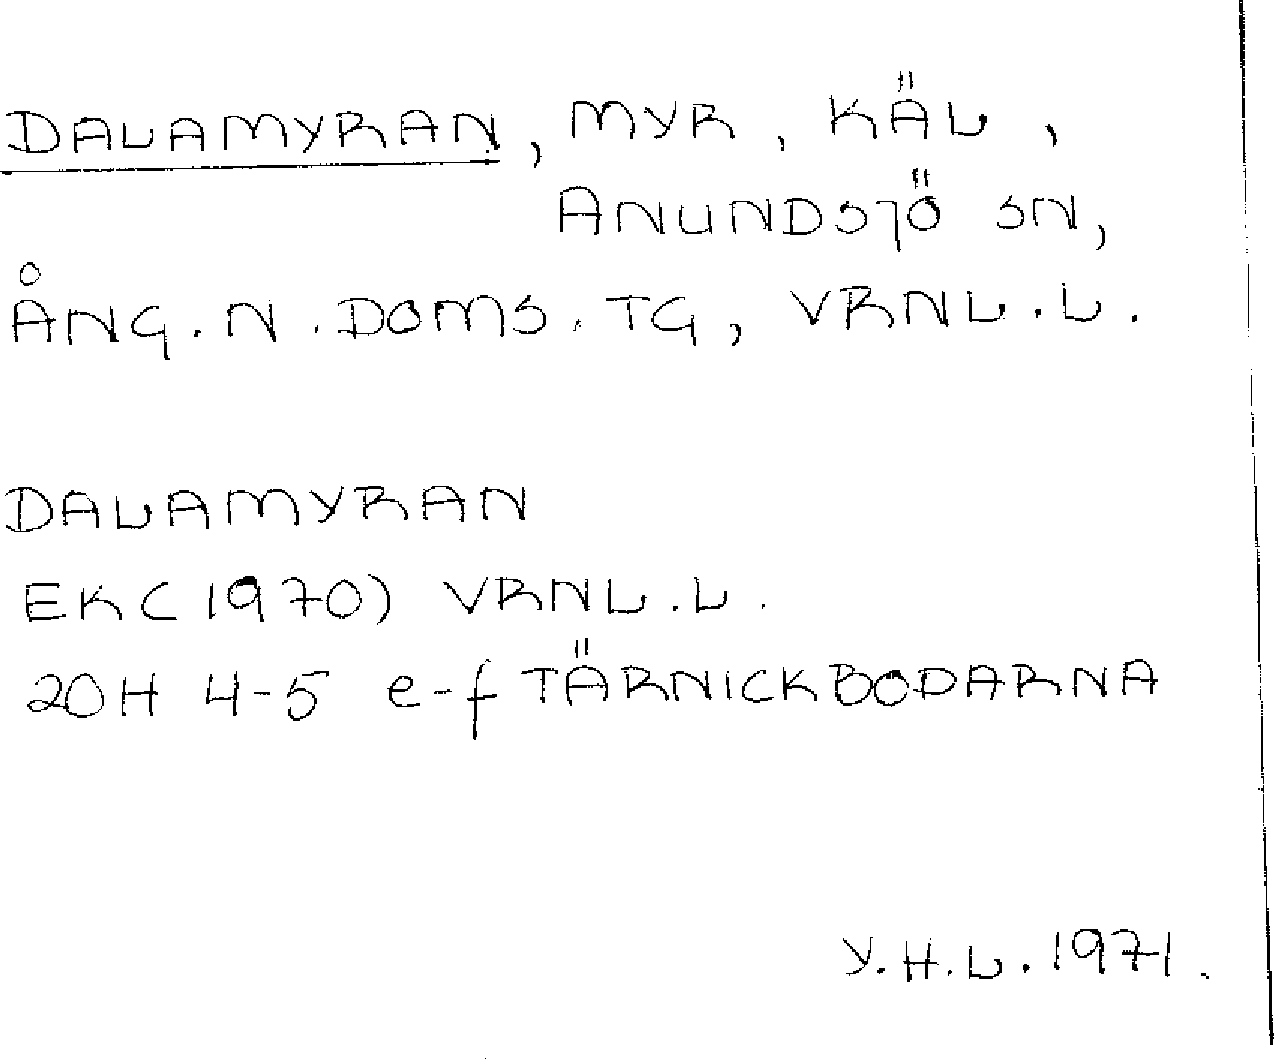 DALAMYRAN, MYR, KÄL,
ANUNDSJÖ SN,
ÅNG. N. DOMS. TG, VRNL.L.
DALAMYRAN
EK(1970) VRNL.L.
20H 4-5 e-f TÄRNICKBODARNA
Y.H.L. 1971.